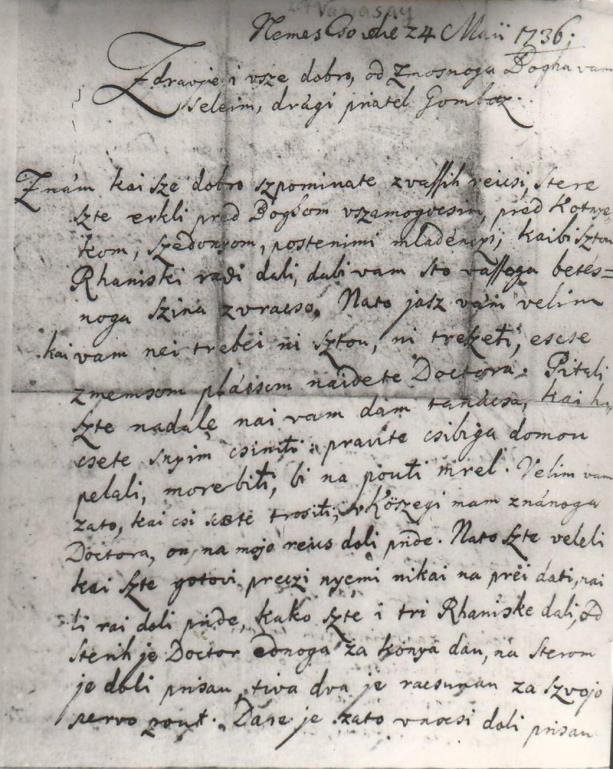 Nemes Cso die 24 Maii 1736.
Zdravje i vsze dobro, od Znosnoga Bogha vam
seleim, drági priatel Gombocz.
Znám kai sze dobro szpominate z vassih reicsi, stere
szte erkli pred Boghom vszamogocsim, pred Kotnye
kom, szedonyom, postenimi mladenczi, kai bi szton
Rhaniski radi dali, da bi vam sto vassega betés-
noga szina zvracso. Nato jasz vam velim
kai vam nei trebei ni szton, ni trheti, escse
z menssom plácsom naidete Doctora. Pitali
szte nadale nai vam dam tanácsa, kai
csete snyim csiniti: pravite csi bi ga domou
pelali, more biti, bi na pouti mrel. Velim vam
zato, kai csi scséte trositi, v Köszegi mam znánoga
Doctora, on na mojo reics doli pride. Nato szte veleli
kai szte gotovi preczi nyemi nikai na prei dati, nai
li rai doli pride, kako szte i tri Rhaniske dali, od
sterih je Doctor ednoga za konya dau, na sterom
je doli prisau, tiva dva je racsunau za szvojo
pervo pout. Dare je zato v nocsi doli prisau